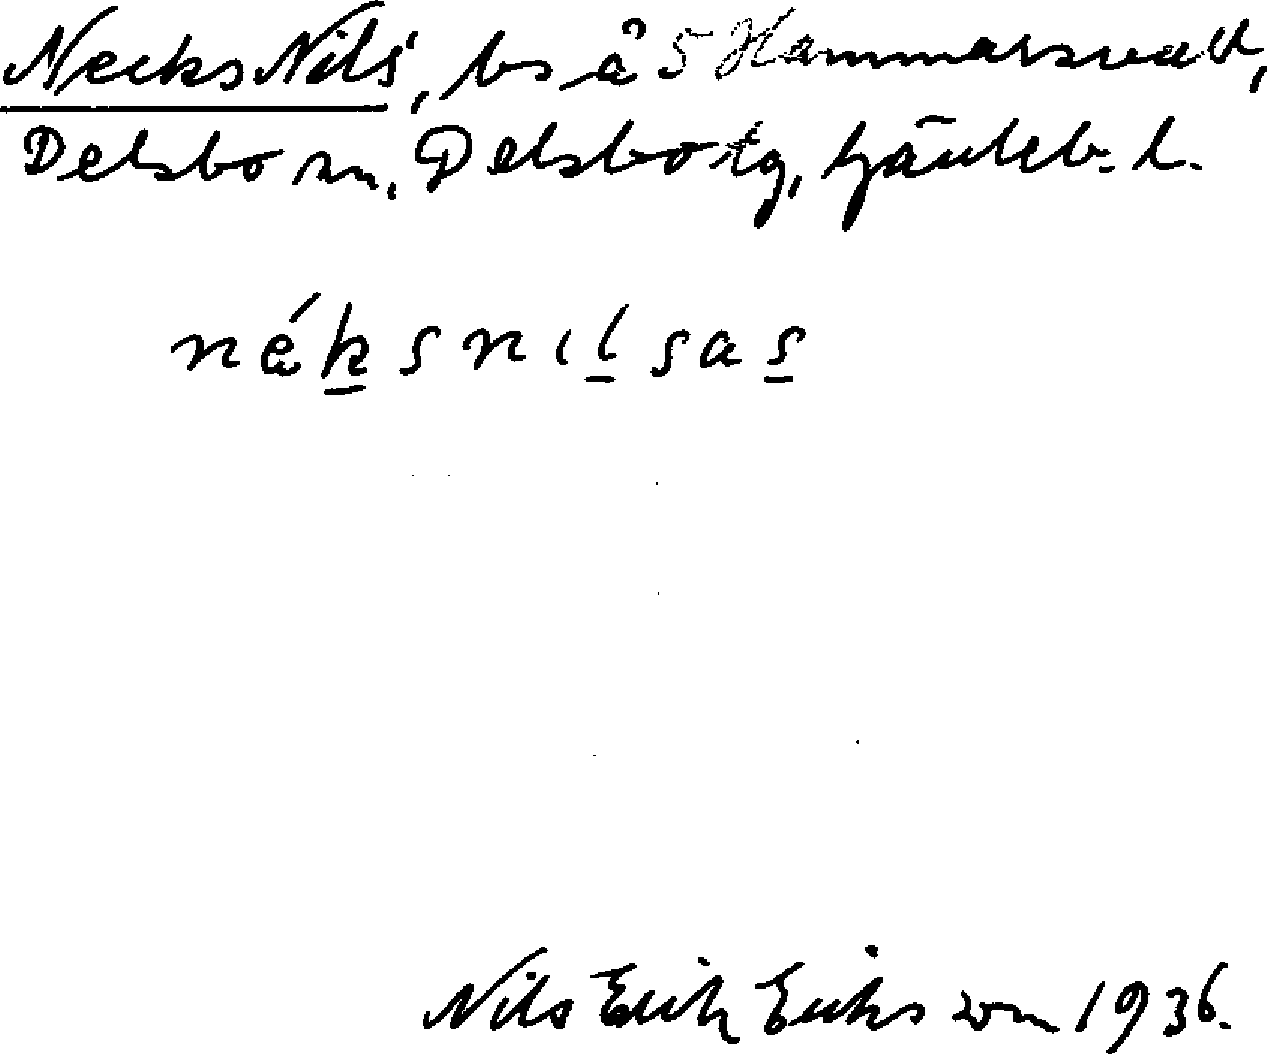 Necks Nils', bs å 5 Hammarsvall,
Delsbo sn, Delsbo tg, Gävleb. l.
néksnılsas
Nils Erik Eriksson 1936.